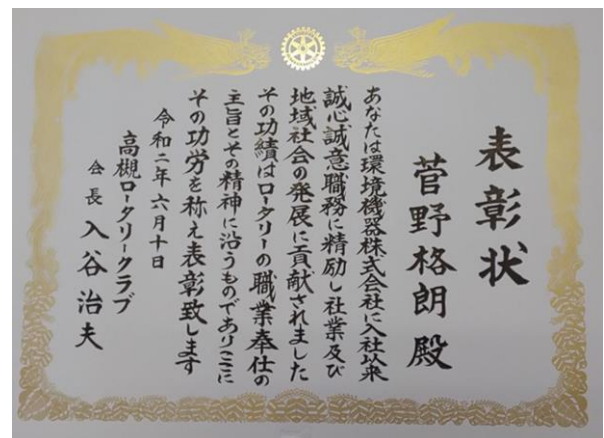 表彰状
菅野格朗 殿
あなたは環境機器株式会社に入社以来
誠心誠意職務に精励し社業及び
地域社会の発展に貢献されました
その功績はロータリーの職業奉仕の
主旨とその精神に沿うものでありここに
その功労を称え表彰致します
令和二年六月十日
高槻ロータリークラブ
会長 入谷治夫